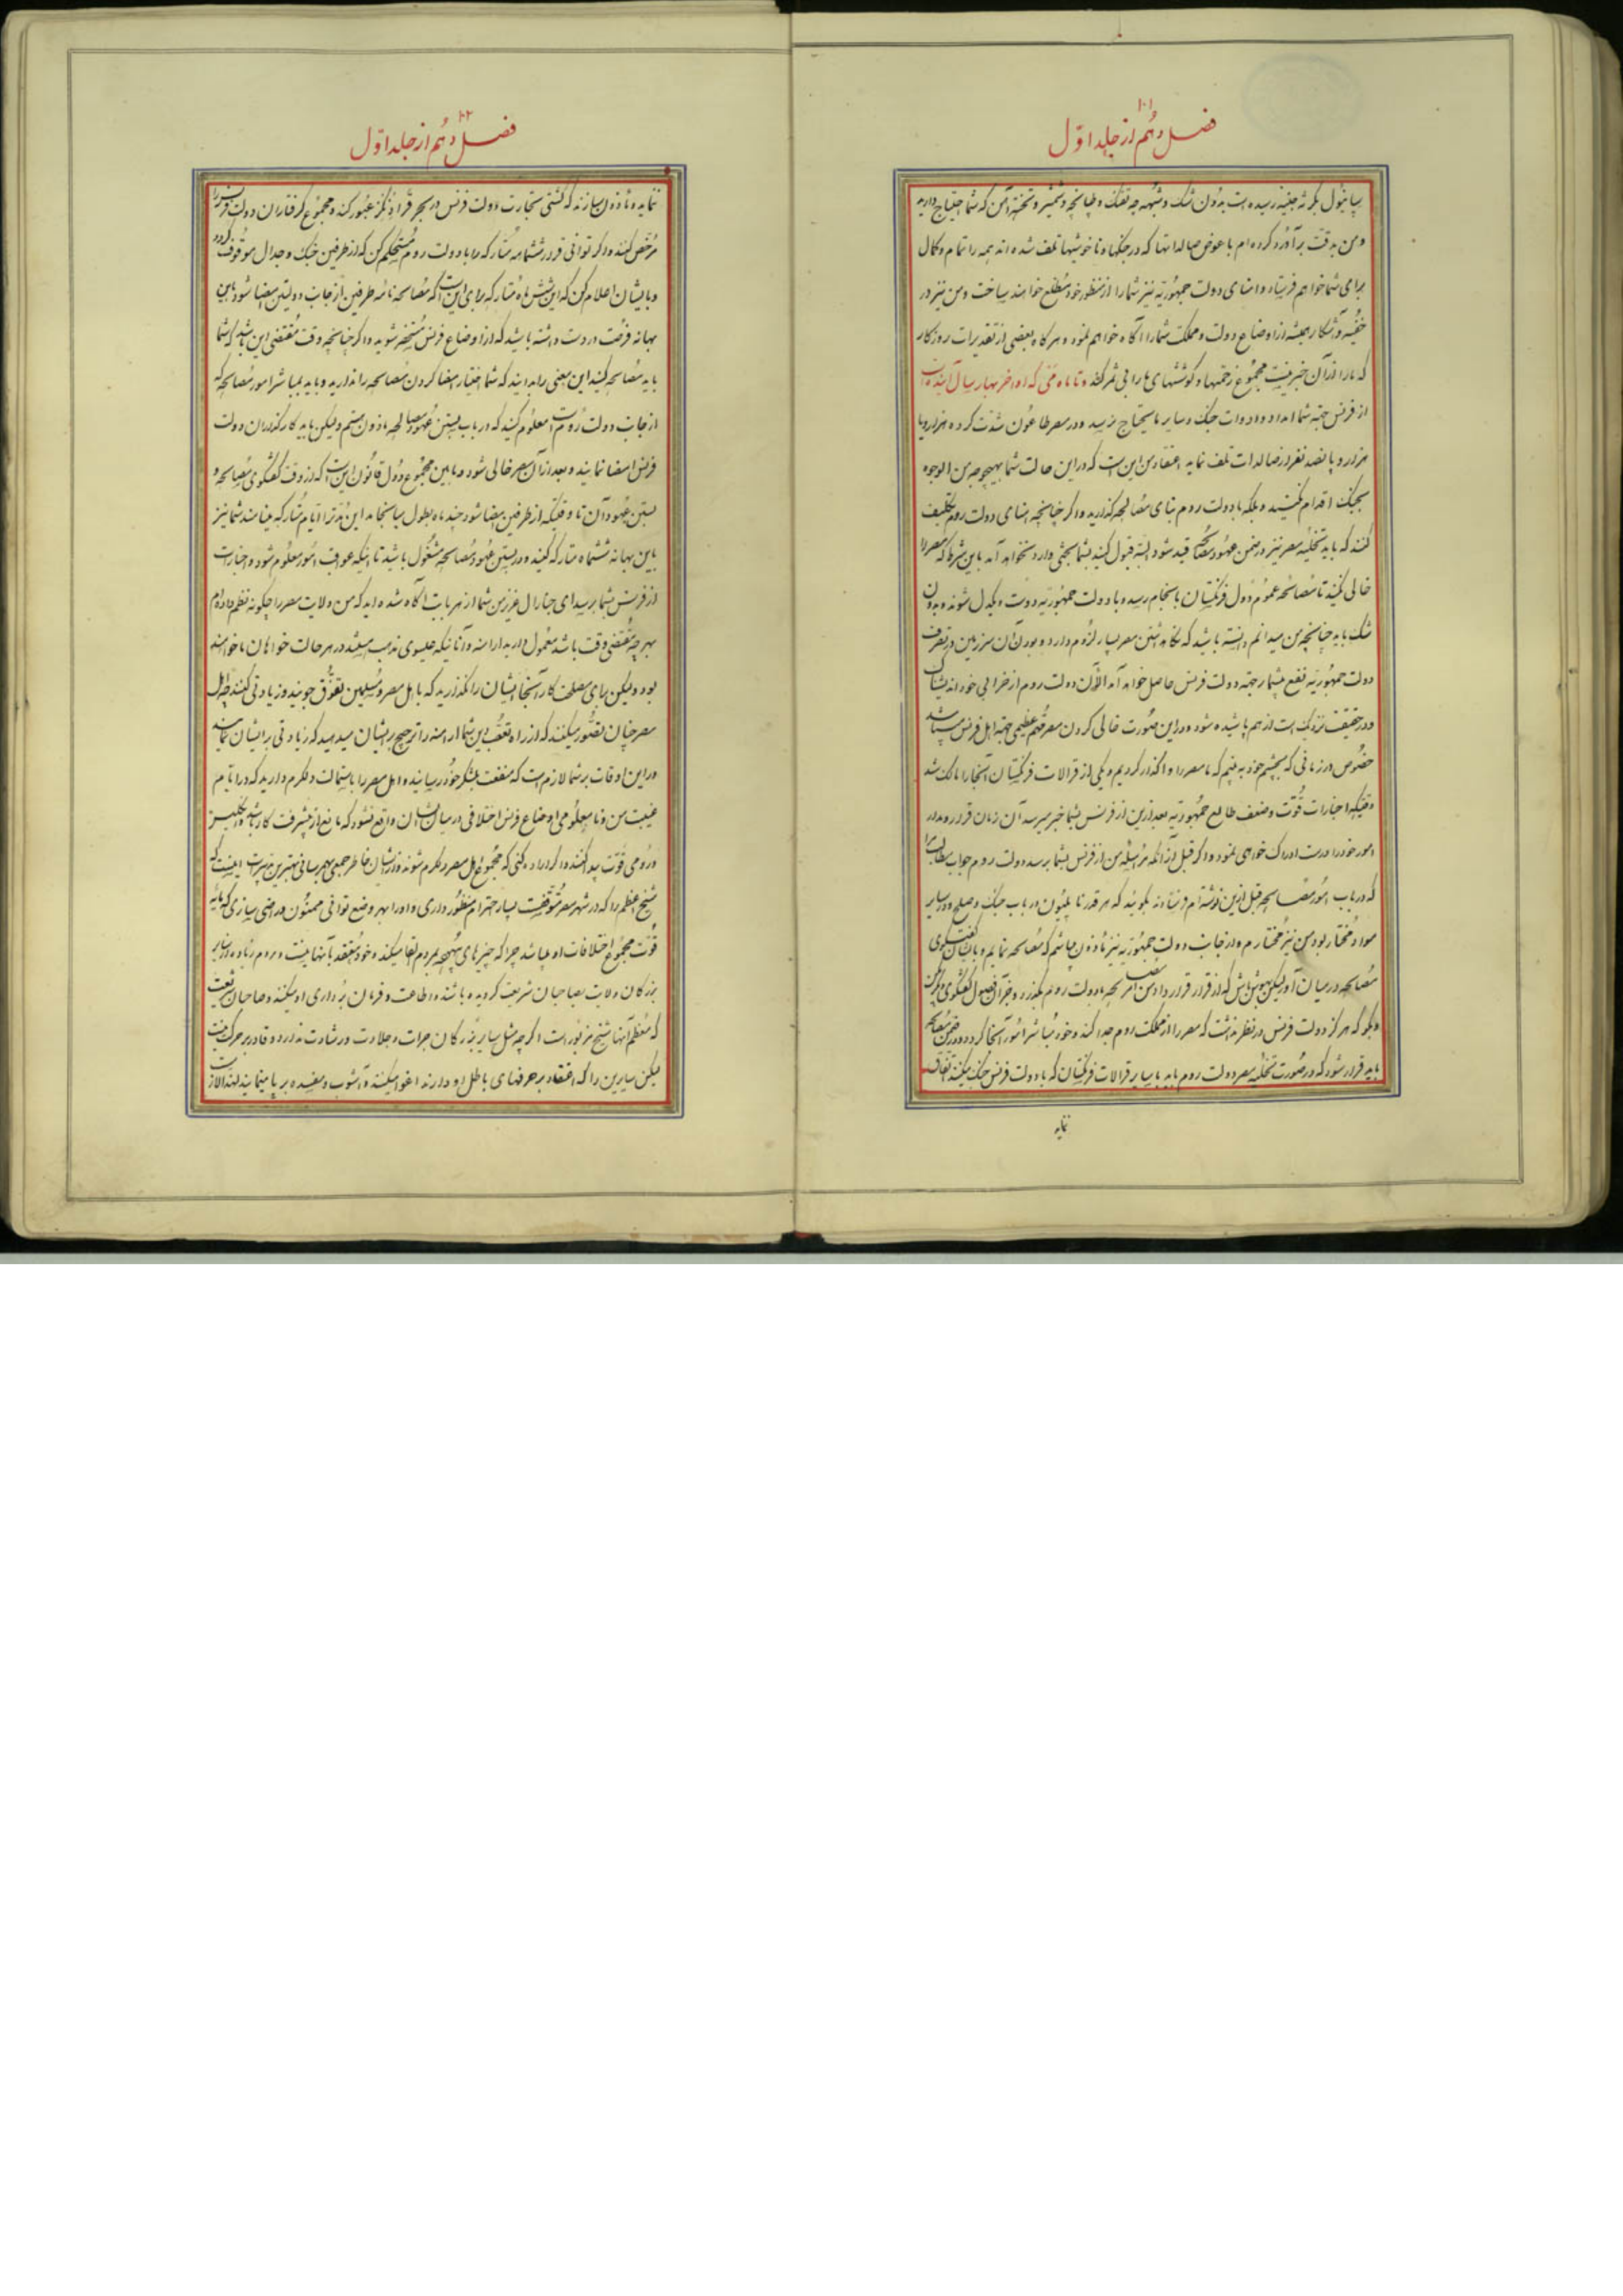 ۱۰۱
فصل دهم از جلد اوّل
رسیده است بدون شک و شبهه چه تفنک و طپانچه و شمشیر و تخته آهن که شما احتیاج دارید
و من بدقت برآورد کرده‌ام با عوض صالداتها که در جنکها و ناخوشیها تلف شده‌اند همه را تمام و کمال
برای شما خواهم فرستاد و امنای دولت جمهوریّه نیز شما را از منظور خود مطلع خواهند ساخت و من نیز در
خفیه و آشکار همیشه از اوضاع دولت و مملکت شما را آکاه خواهم نمود و هرکاه بعضی از تقدیرات روزکار
که ما را از آن خبر نیست مجموع زحمتها و کوششهای ما را بی ثمر کند و تا ماه مَی که اواخر بهار سال آینده است
از فرنس جهة شما امداد و ادوات جنک و سایر مایحتاج نرسد و در مصر طاعون شدّت کرده هزار و یا
هزار و پانصد نفر از صالدات تلف نماید اعتقاد من این است که در این حالت شما بهیچوجه من الوجوه
بجنک اقدام نکنید و بلکه با دولت روم بنای مصالحه کذارید و اکر چنانچه امنای دولت روم تکلیف
کنند که باید تخلیه مصر نیز در ضمن عهود مصالحه قید شود البته قبول کنید بشما بحثی وارد نخواهد آمد باین شرط که مصر را
خالی نکنید تا مصالحه عموم دول فرنکستان بانجام رسد و با دولت جمهوریّه دوست و یکدل شوند و بدون
شک باید چنانچه من میدانم دانسته باشید که نکاه داشتن مصر بسیار لزوم دارد و بودن آن سرزمین در تصرف
دولت جمهوریّه نفع بیشمار جهة دولت فرنس حاصل خواهد آمد الآن دولت روم از خرابی خود اندیشناک
و در حقیقت نزدیک است از هم پاشیده شود و در این صورت خالی کردن مصر غم عظیمی جهة اهل فرنس میباشد
خصوص در زمانی که بچشم خود به بینم که ما مصر را واکذار کردیم و یکی از قرالات فرنکستان آنجا را مالک شد
وقتیکه اخبارات قوّت و ضعف طالع جمهوریّه بعد از این از فرنس بشما خبر میرسد آن زمان قرار و مدار
امور خود را درست ادراک خواهی نمود و اکر قبل از آنکه مراسله من از فرنس بشما برسد دولت روم جواب مطالب را
که در باب امور مصالحه قبل از این نوشته‌ام فرستادند بکویند که هر قدر ناپلیون در باب جنک و صلح و در سایر
مواد مختار بود من نیز مختارم و از جانب دولت جمهوریّه نیز مأذون میباشم که مصالحه نمایم و با ایشان کفتکوی
مصالحه در میان آور لیکن بهوش باش که از قرار قرارداد من امر مصالحه با دولت روم بکذرد و جز آن فصول کفتکوی دیکر مکن
و بکو که هرکز دولت فرنس در نظر نداشت که مصر را از مملکت روم جدا کند و خود مباشر امور آنجا کردد و در ضمن مصالحه
باید قرار شود که در صورت تخلیه مصر دولت روم باید با سایر قرالات فرنکستان که با دولت فرنس جنک میکنند اتفاق
نماید
۱۰۲
فصل دهم از جلد اوّل
نماید و مأذون سازند که کشتی تجارت دولت فرنس در بحر قرا دنکز عبور کند و مجموع کرفتاران دولت فرنس را
مرخص کنند و اکر توانی قرار ششماهه متارکه را با دولت روم مستحکم کن که از طرفین جنک و جدال موقوف کردد
و بایشان اعلام کن که این شش ماه متارکه برای این است که مصالحه نامه طرفین از جانب دولتین امضا شود باین
بهانه فرصت در دست داشته باشید که از اوضاع فرنس مستخبر شوید و اکر چنانچه وقت مقتضی این باشد که شما
باید مصالحه کنید این معنی را بدانید که شما اختیار امضا کردن مصالحه را ندارید و باید بمباشر امور مصالحه که
از جانب دولت روم است معلوم کنید که در باب بستن عهود مصالحه مأذون هستم ولیکن باید کارکذاران دولت
فرنس امضا نمایند و بعد از آن مصر خالی شود و مابین مجموع دول قانون این است که از وقت کفتکوی مصالحه و
بستن عهود آن تا وقتیکه از طرفین امضا شود چند ماه بطول میانجامد این مدّت را ایّام متارکه مینامند شما نیز
باین بهانه ششماه متارکه کنید و در بستن عهود مصالحه مشغول باشید تا اینکه عواقب امور معلوم شود و اخبارات
از فرنس بشما برسد ای جنرال عزیز من شما از هر بابت آکاه شده‌اید که من ولایت مصر را چکونه نظم داده‌ام
بهر چه مقتضی وقت باشد معمول دارید ارامنه و آنانیکه عیسوی مذهب میباشند در هر حالت خواهان ما خواهند
بود ولیکن برای مصلحت کار آنجا ایشان را نکذارید که باهل مصر و مسلمین تفوّق جویند و زیادتی کنند چه اهل
مصر چنان تصوّر میکنند که از راه تعصّب دین شما ارامنه را ترجیح بر ایشان میدهید که زیادتی بر ایشان نمایند
در این اوقات بر شما لازم است که منفعت بلشکر خود رسانید و اهل مصر را باستمالت دلکرم دارید که در ایّام
غیبت من و نامعلومی اوضاع فرنس اختلافی در میان ایشان واقع نشود که مانع از پیشرفت کار باشد و انکلیس
و رومی قوّت پیدا کنند و اکر اراده کنی که مجموع اهل مصر دلکرم شوند و از ایشان خاطر جمعی بهم رسانی بهترین تدبیرات اینست که
شیخ اعظم را که در شهر مصر متوقف است بسیار احترام منظور داری و او را بهر وضع توانی ممنون و راضی سازی که مایه
قوّت مجموع اختلافات او میباشد چرا که چیزهای بیهوده بمردم القا میکند و خود معتقد بآنها نیست و مردم زیاده از سایر
بزرکان ولایت بصاحبان شریعت کرویده باشند و اطاعت و فرمان برداری او میکنند و صاحبان شریعت
که معظم آنها شیخ مزبور است اکرچه مثل سایر بزرکان جرات و جلادت و رشادت ندارد و قادر بر حرکت نیست
لیکن سایرین را که اعتقاد بر حرفهای باطل او دارند اغوا میکند و آشوب و مفسده بر پا مینمایند لهذا لازم است